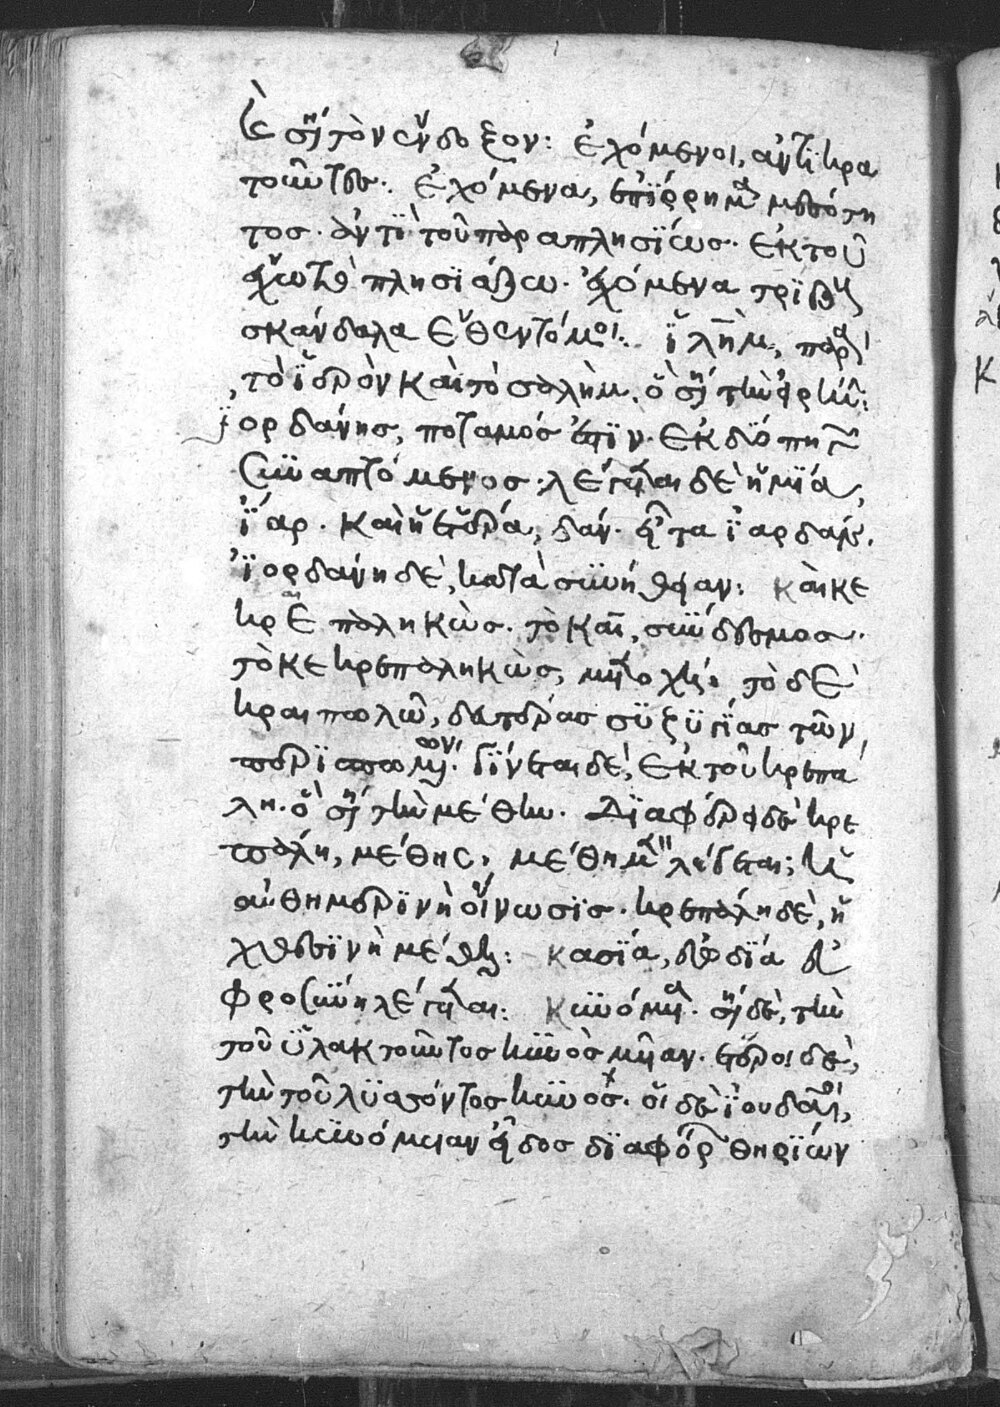 ἐσὴ τὸν ἔνδοξον: ἐχόμενοι, ἀντὶ κρα
τοῦντες. ἐχόμενα, ἐπίρρημα μεσότη
τος· ἀντὶ τοῦ παραπλησίως· ἐκ τοῦ
ἔχω τὸ πλησιάζω· ἐχόμενα τρίβου
σκάνδαλα ἔθεντό μοι: ἱλὴμ, παρὰ
τὸ ἱερὸν καὶ τὸ σαλὴμ. ὅ ἐστι τὴν εἰρήνην:
ἰορδάνης, ποταμός ἐστιν· ἐκ δύο πηγῶν
συναπτόμενος· λέγεται δὲ ἡ μία,
ἴαρ· καὶ ἡ ἑτέρα, δάν· εἶτα ἰαρδάν.
ἰορδάνη δὲ, κατὰ συνήθειαν: καὶ κε
κραιπαληκὼς· τὸ καὶ, σύνδεσμος·
τὸ κεκρεπαληκὼς, μετοχή· τὸ δὲ
κραιπαλῶ, δευτέρας συζυγίας τῶν
περισπωμένων· γίνεται δὲ, ἐκ τοῦ κρεπά
λη· ὅ ἐστι τὴν μέθην· διαφέρει δὲ κρε
πάλη, μέθης· μέθη μὲν λέγεται, ἡ
αὐθημερινὴ οἴνωσις· κρεπάλη δὲ, ἡ
χθεσινὴ μέθη: κασία, εὐωδία
λέγεται: κυνόμυια· ἐστὶ δὲ, τὴν
τοῦ ὑλακτοῦντος κυνὸς μυῖαν· ἕτεροι δὲ,
τὴν τοῦ λυσσῶντος κυνός· οἱ δὲ ἰουδαῖοι,
τὴν κυνόμυιαν εἶδος διαφόρων θηρίων